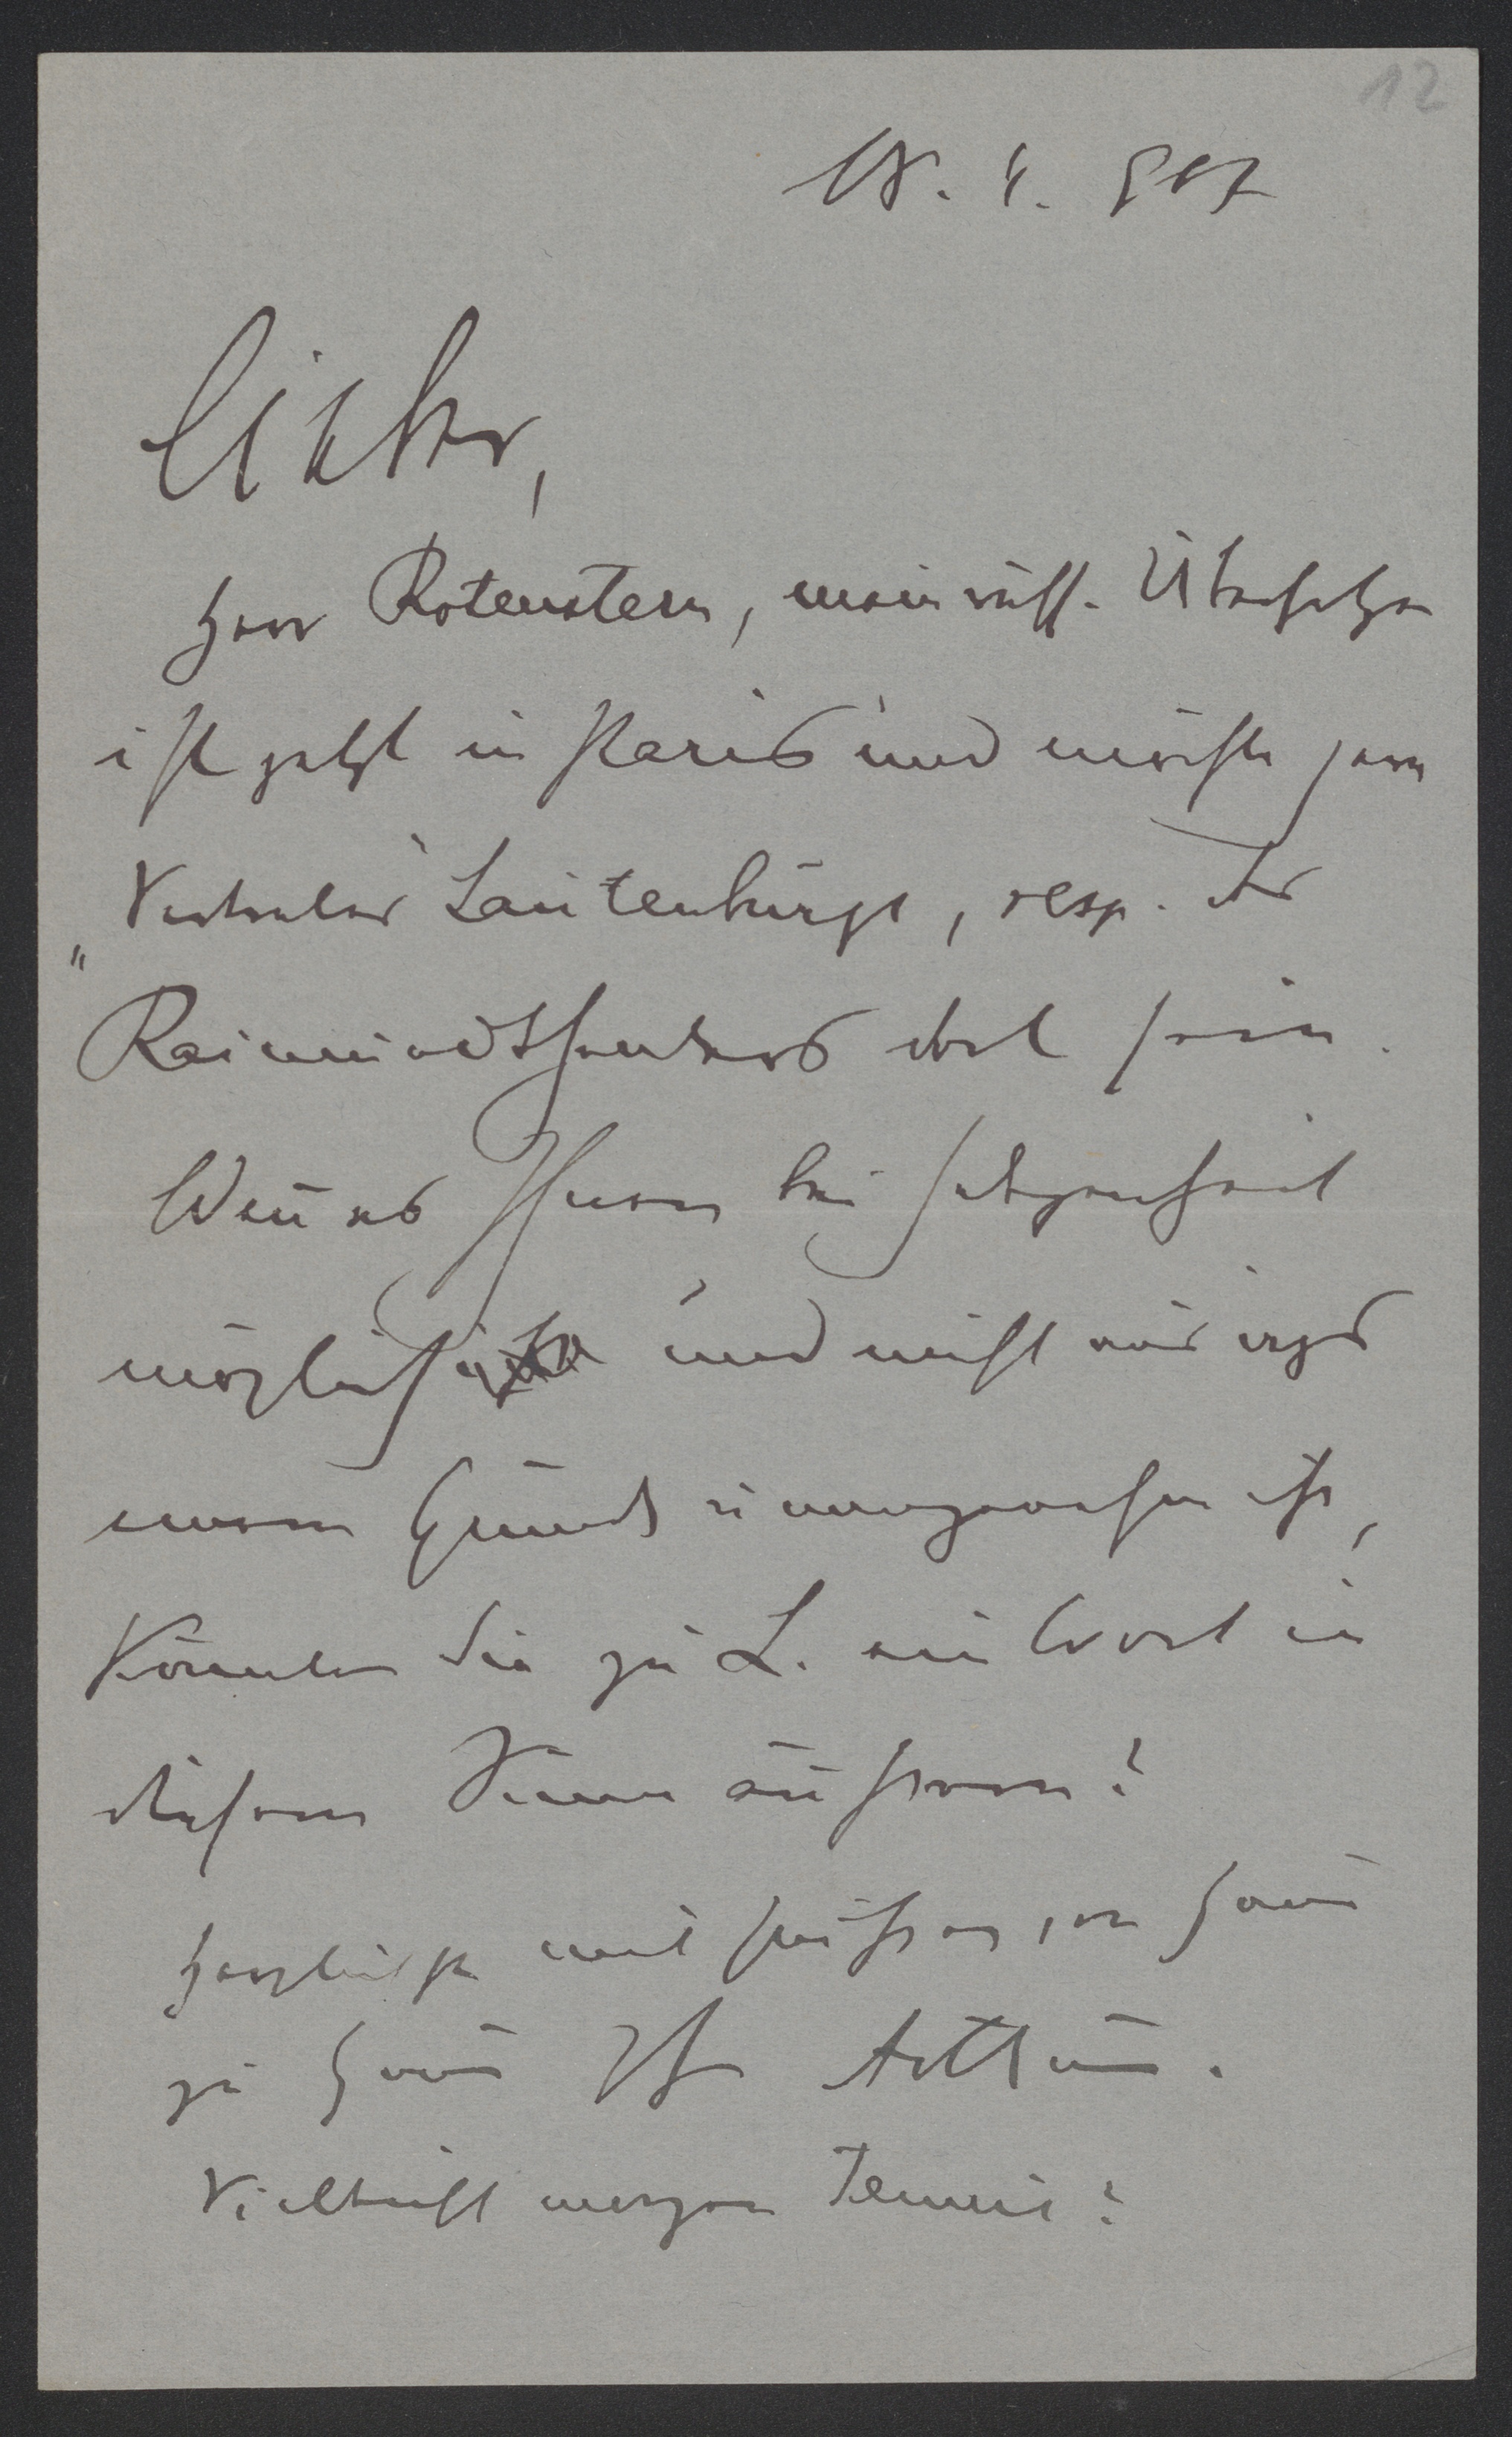 12
18. 4. 907
Lieber,
Herr Rotenstern, mein russ. Übersetzer
ist jetzt in Paris und möchte gern
„Vertreter“ Lautenburgs, resp. des
Raimundtheaters dort sein.
Wenn es Ihnen bei Gelegenheit
möglich und nicht aus irgd
einem Grunde unangenehm ist,
könnten Sie zu L. ein Wort in
diesem Sinne äußern?
Herzlichst mit Grüßen, von Haus
zu Haus Ihr Arthur.
Vielleicht morgen Tennis?